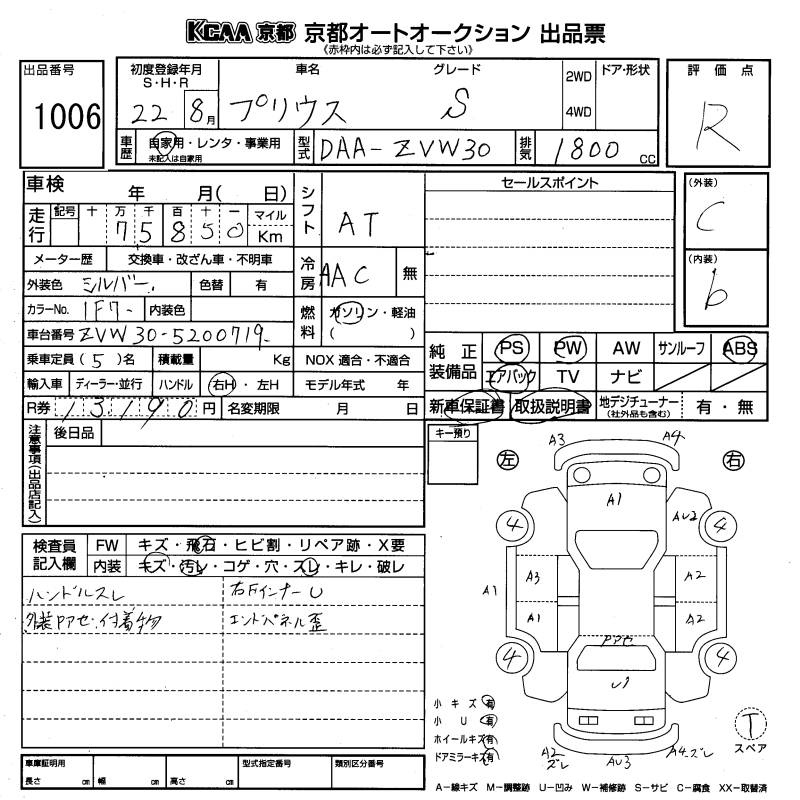 KCAA 京都 京都オートオークション 出品票
《赤枠内は必ず記入して下さい》
出品番号
1006
初度登録年月
S・H・R
22 8月
車名
プリウス
グレード
S
2WD
4WD
ドア・形状
評価点
R
車歴
自家用・レンタ・事業用
未記入は自家用
型式
DAA-ZVW30
排気
1800 cc
車検 年 月( 日)
走行
記号 十 万 千 百 十 一
7 5 8 5 0
マイル
Km
シフト
AT
セールスポイント
(外装)
C
(内装)
b
メーター歴 交換車・改ざん車・不明車
外装色 シルバー 色替 有
冷房
AAC 無
カラーNo. 1F7- 内装色
燃料
ガソリン・軽油
( )
車台番号 ZVW30-5200719
乗車定員(5)名 積載量 Kg NOX 適合・不適合
輸入車 ディーラー・並行 ハンドル 右H・左H モデル年式 年
R券 13190円 名変期限 月 日
純正装備品
PS PW AW サンルーフ ABS
エアバック TV ナビ
新車保証書 取扱説明書 地デジチューナー (社外品も含む) 有・無
注意事項(出品店記入)
後日品
キー預り
左 右
A3 A4
A1
AU2
4 4
A3 A2
A1
A1 A2
PPセ
4 4
U1
A2 ズレ AU3 A4.ズレ
検査員記入欄
FW キズ・飛石・ヒビ割・リペア跡・X要
内装 キズ・汚レ・コゲ・穴・スレ・キレ・破レ
ハンドルスレ 右Fインナー U
外装PPセ.付着物 エンドパネル歪
小キズ 有
小U 有
ホイールキズ 有
ドアミラーキズ 有
T
スペア
車庫証明用
長さ cm 幅 cm 高さ cm
型式指定番号
類別区分番号
A−線キズ M−調整跡 U−凹み W−補修跡 S−サビ C−腐食 XX−取替済